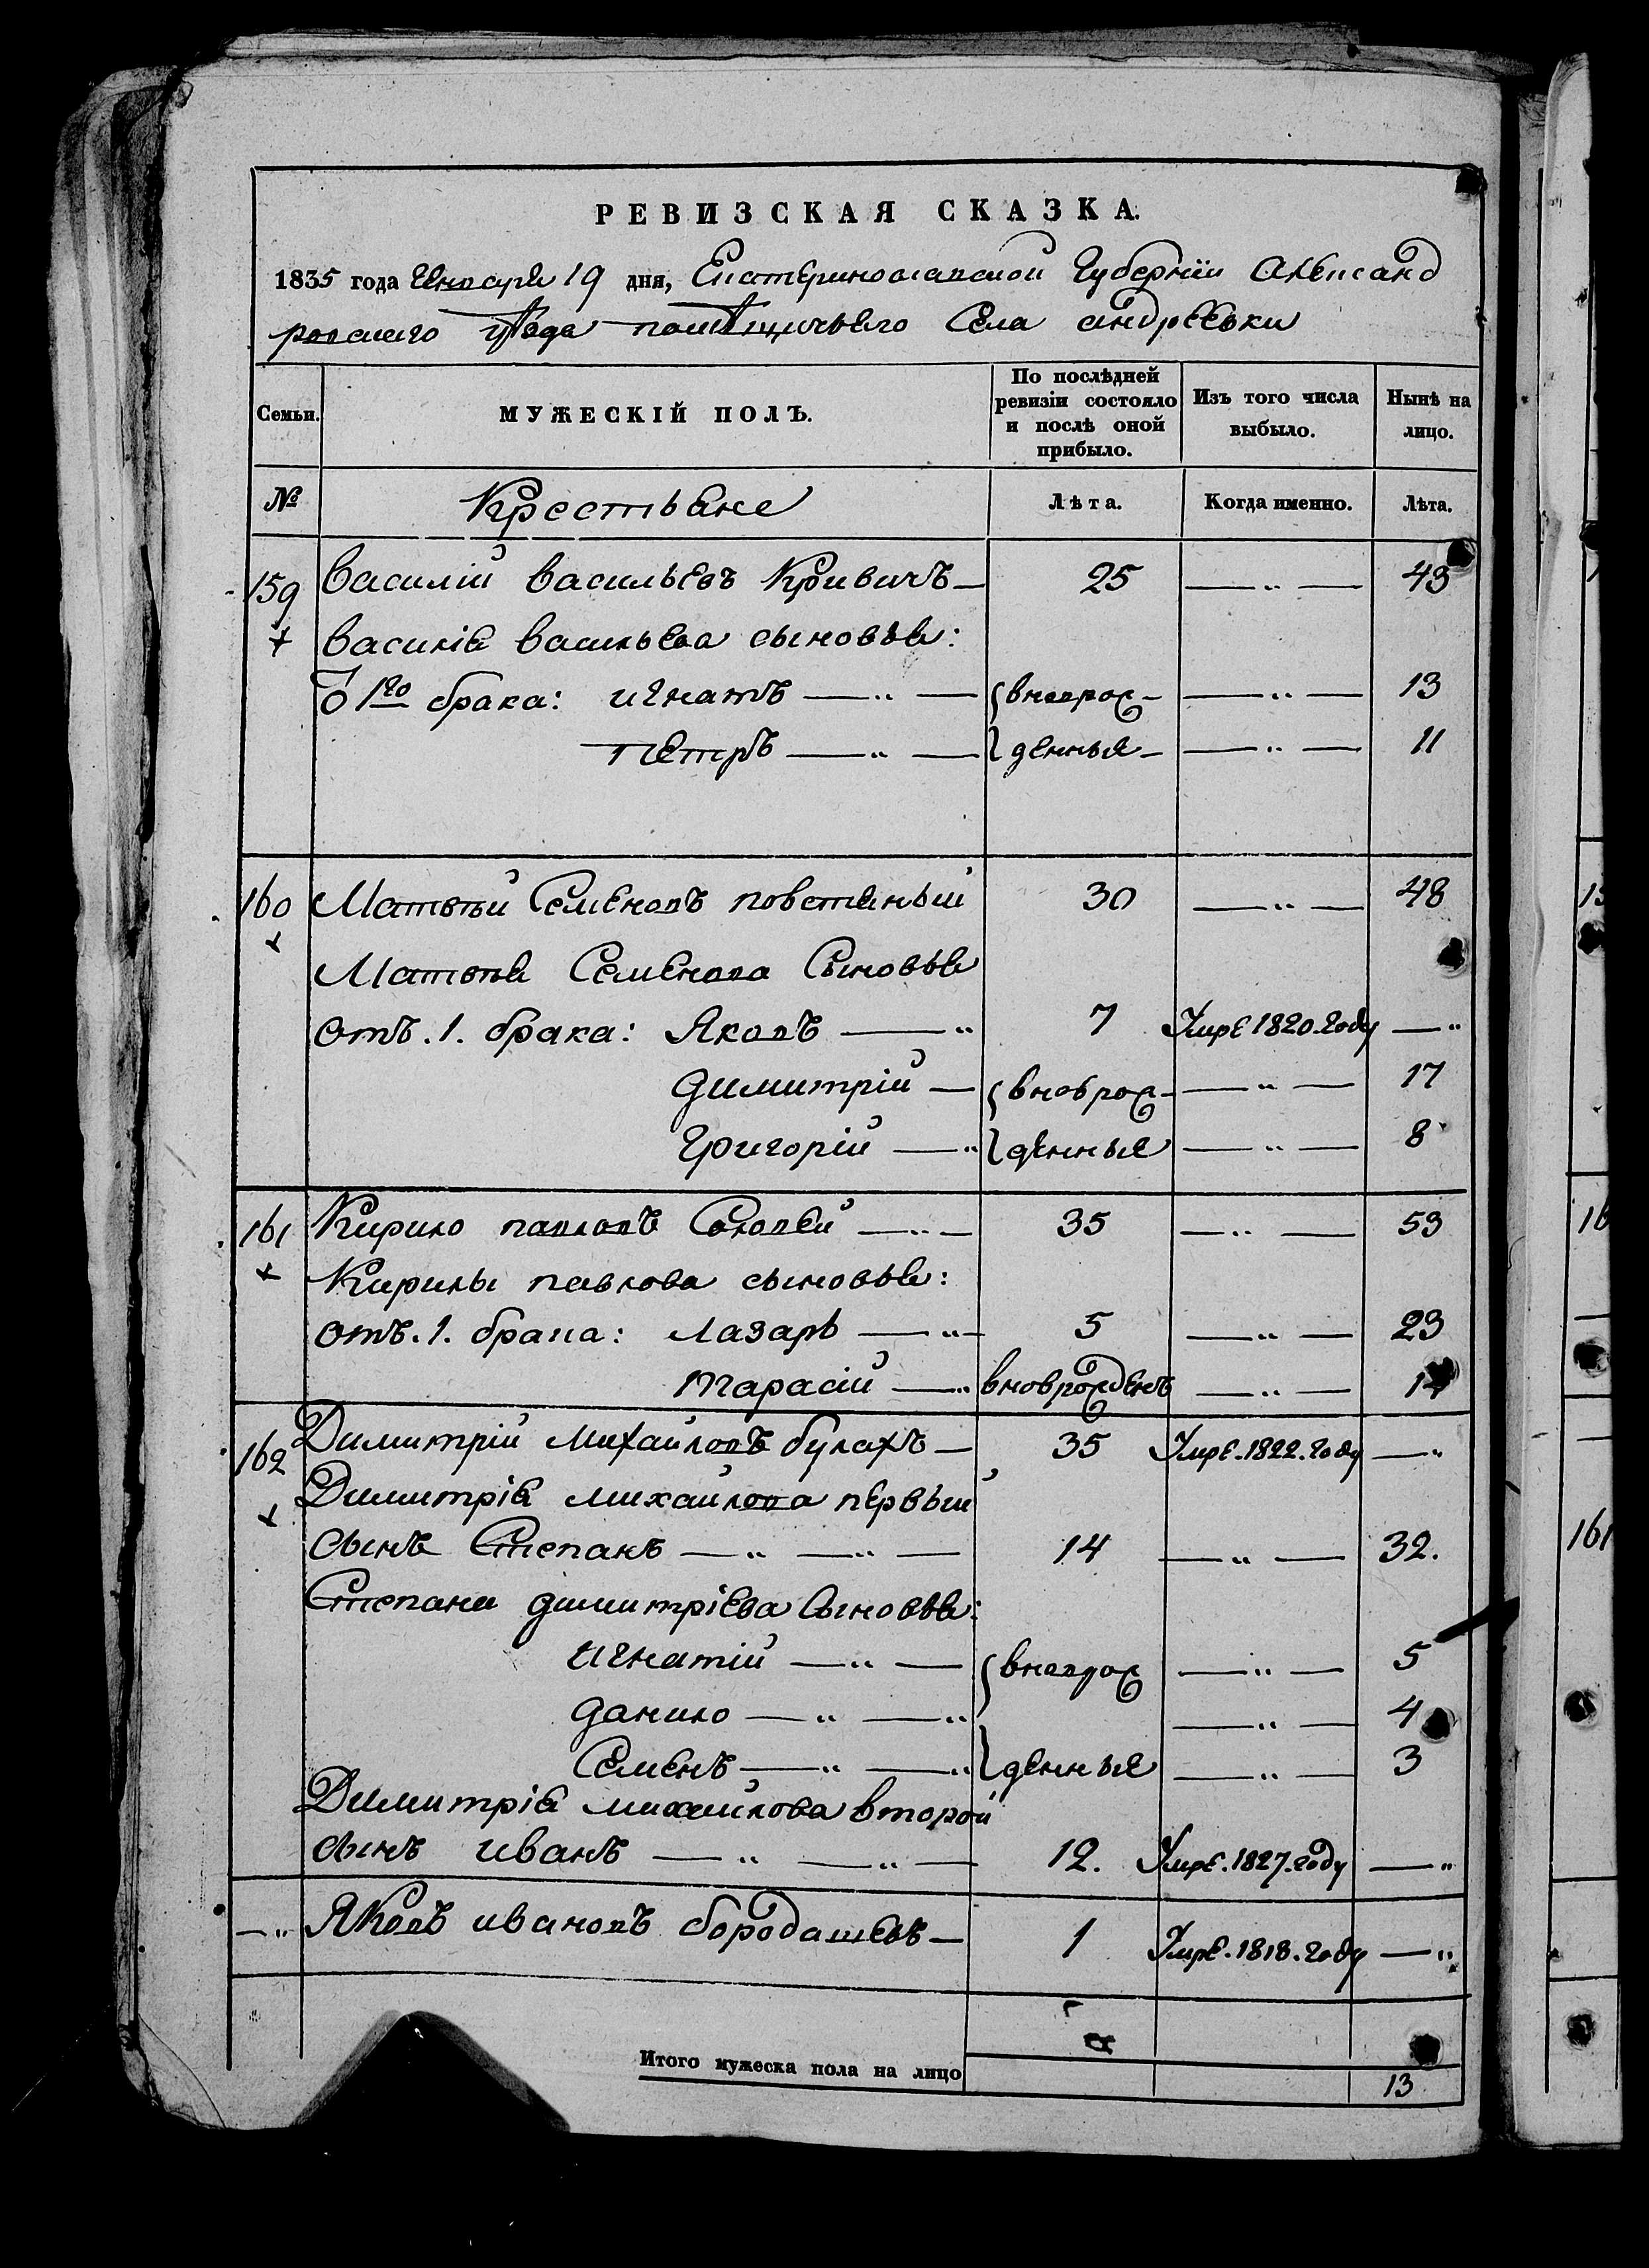 РЕВИЗСКАЯ СКАЗКА.
1835 года Генваря 19 дня, Екатеринославской Губерніи Александ
ровского уѣзда помѣщичьего Села андреевки
Семьи.
МУЖЕСКІЙ ПОЛЪ.
По послѣдней ревизіи состояло и послѣ оной прибыло.
Изъ того числа выбыло.
Нынѣ на лицо.
№ Крестьяне Лѣта. Когда именно. Лѣта.
159 Василій васильевъ Кривичъ — 25 — „ — 43
Василія васильева сыновья:
о 1го брака: игнатъ — „ — вноврож- — „ — 13
петръ — „ — денныя — — „ — 11
160 Матвѣй Семеновъ повстяный 30 — „ — 48
Матвѣя Семенова Сыновья
отъ. 1. брака: Яковъ — „ 7 Умре 1820. году — „
димитрій — вноврож- — „ — 17
Григорій — „ денныя — „ — 8
161 Кирило павловъ Соловей — „ — 35 — „ — 53
Кирилы павлова сыновья:
отъ. 1. брака: Лазарь — „ — 5 — „ — 23
тарасій — „ вноврожденъ — „ — 14
162 Димитрій михайловъ булахъ — 35 Умре. 1822. году — „
Димитрія михайлова первый
сынъ Степанъ — „ — „ — 14 — „ — 32.
Степана димитріева Сыновья:
игнатій — „ — вноврож — „ — 5
данило — „ — „ — „ — 4
Семенъ — „ — „ денныя — „ — 3
Димитрія михайлова второй
сынъ иванъ — „ — „ — 12. Умре. 1827. году — „
— „ Яковъ ивановъ бородашевъ — 1 Умре. 1818. году — „
Итого мужеска пола на лицо 13